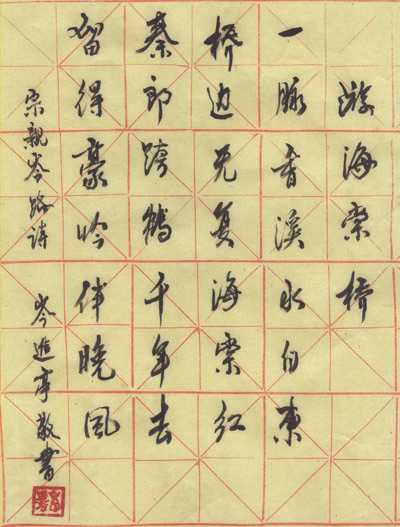 游海棠桥
一脉香溪水自東
桥边无复海棠红
秦郎跨鹤千年去
留得豪吟伴晓风
宗親岑路诗
岑進亭敬書